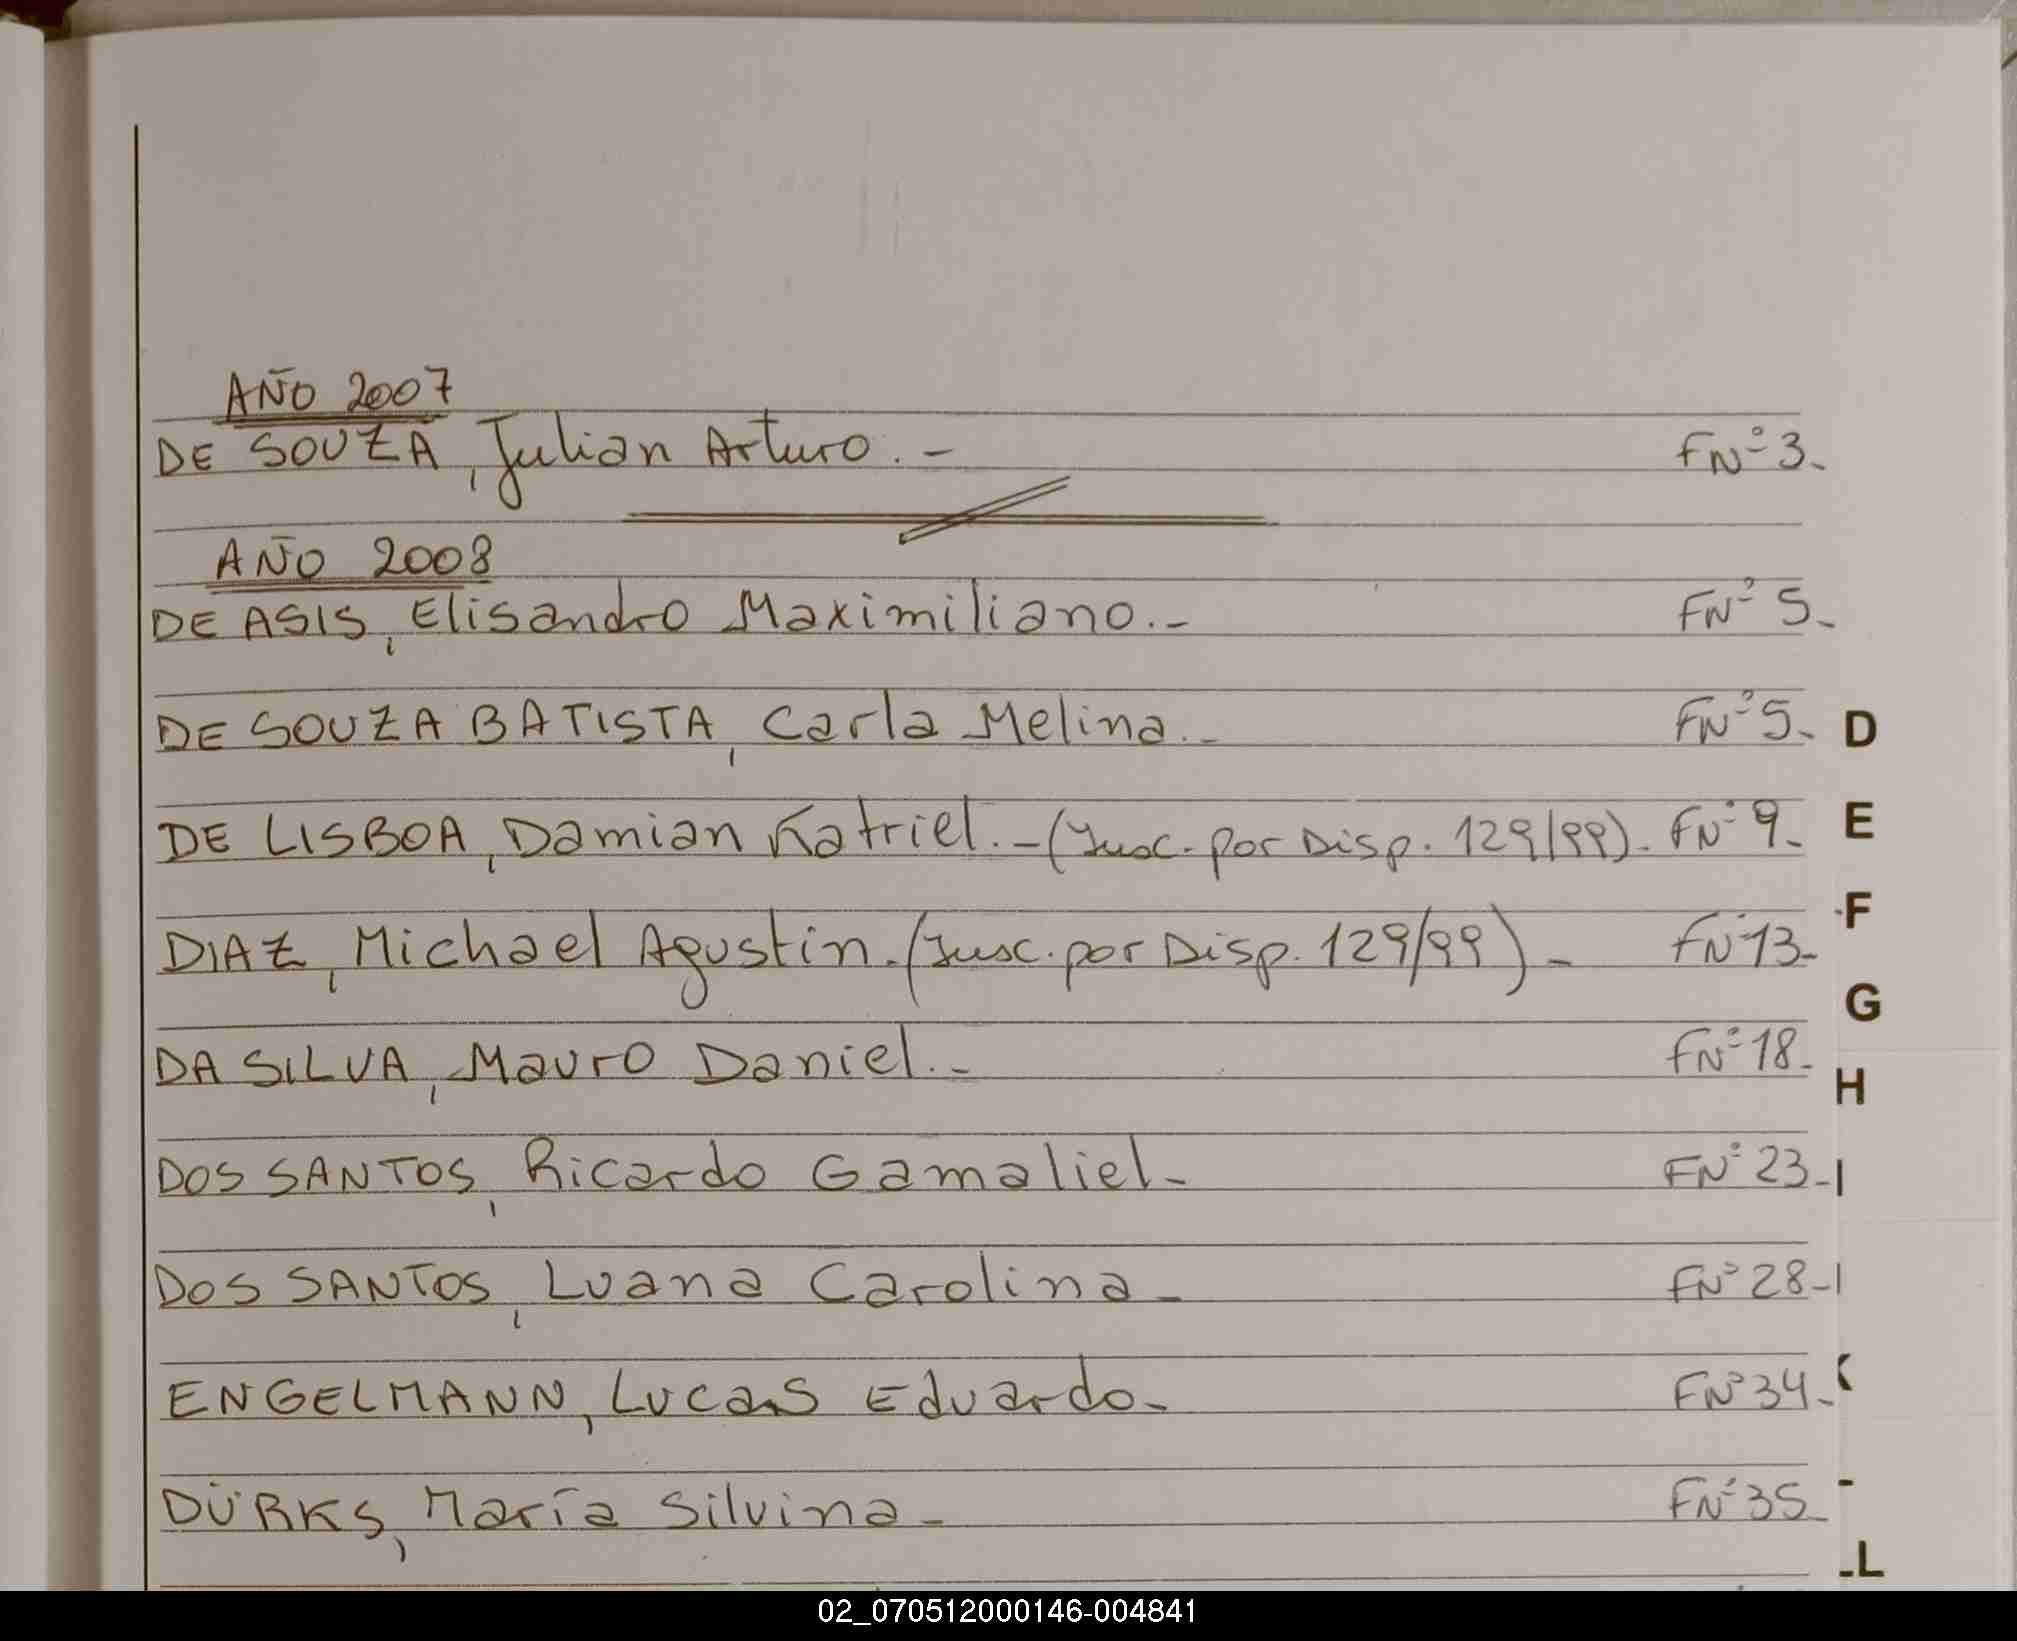 AÑO 2007
DE SOUZA, Julian Arturo.- FNº 3-
AÑO 2008
DE ASIS, Elisandro Maximiliano.- FNº 5-
DE SOUZA BATISTA, Carla Melina.- FNº 5-
D
DE LISBOA, Damian Katriel.-(Insc. por Disp. 129/99)- FNº 9-
E
F
DIAZ, Michael Agustin.(Insc. por Disp. 129/99)- FNº 13-
G
DA SILVA, Mauro Daniel.- FNº 18-
H
DOS SANTOS, Ricardo Gamaliel- FNº 23-
I
DOS SANTOS, Luana Carolina- FNº 28-
ENGELMANN, Lucas Eduardo- FNº 34-
K
DÜRKS, María Silvina- FNº 35-
LL
02_070512000146-004841